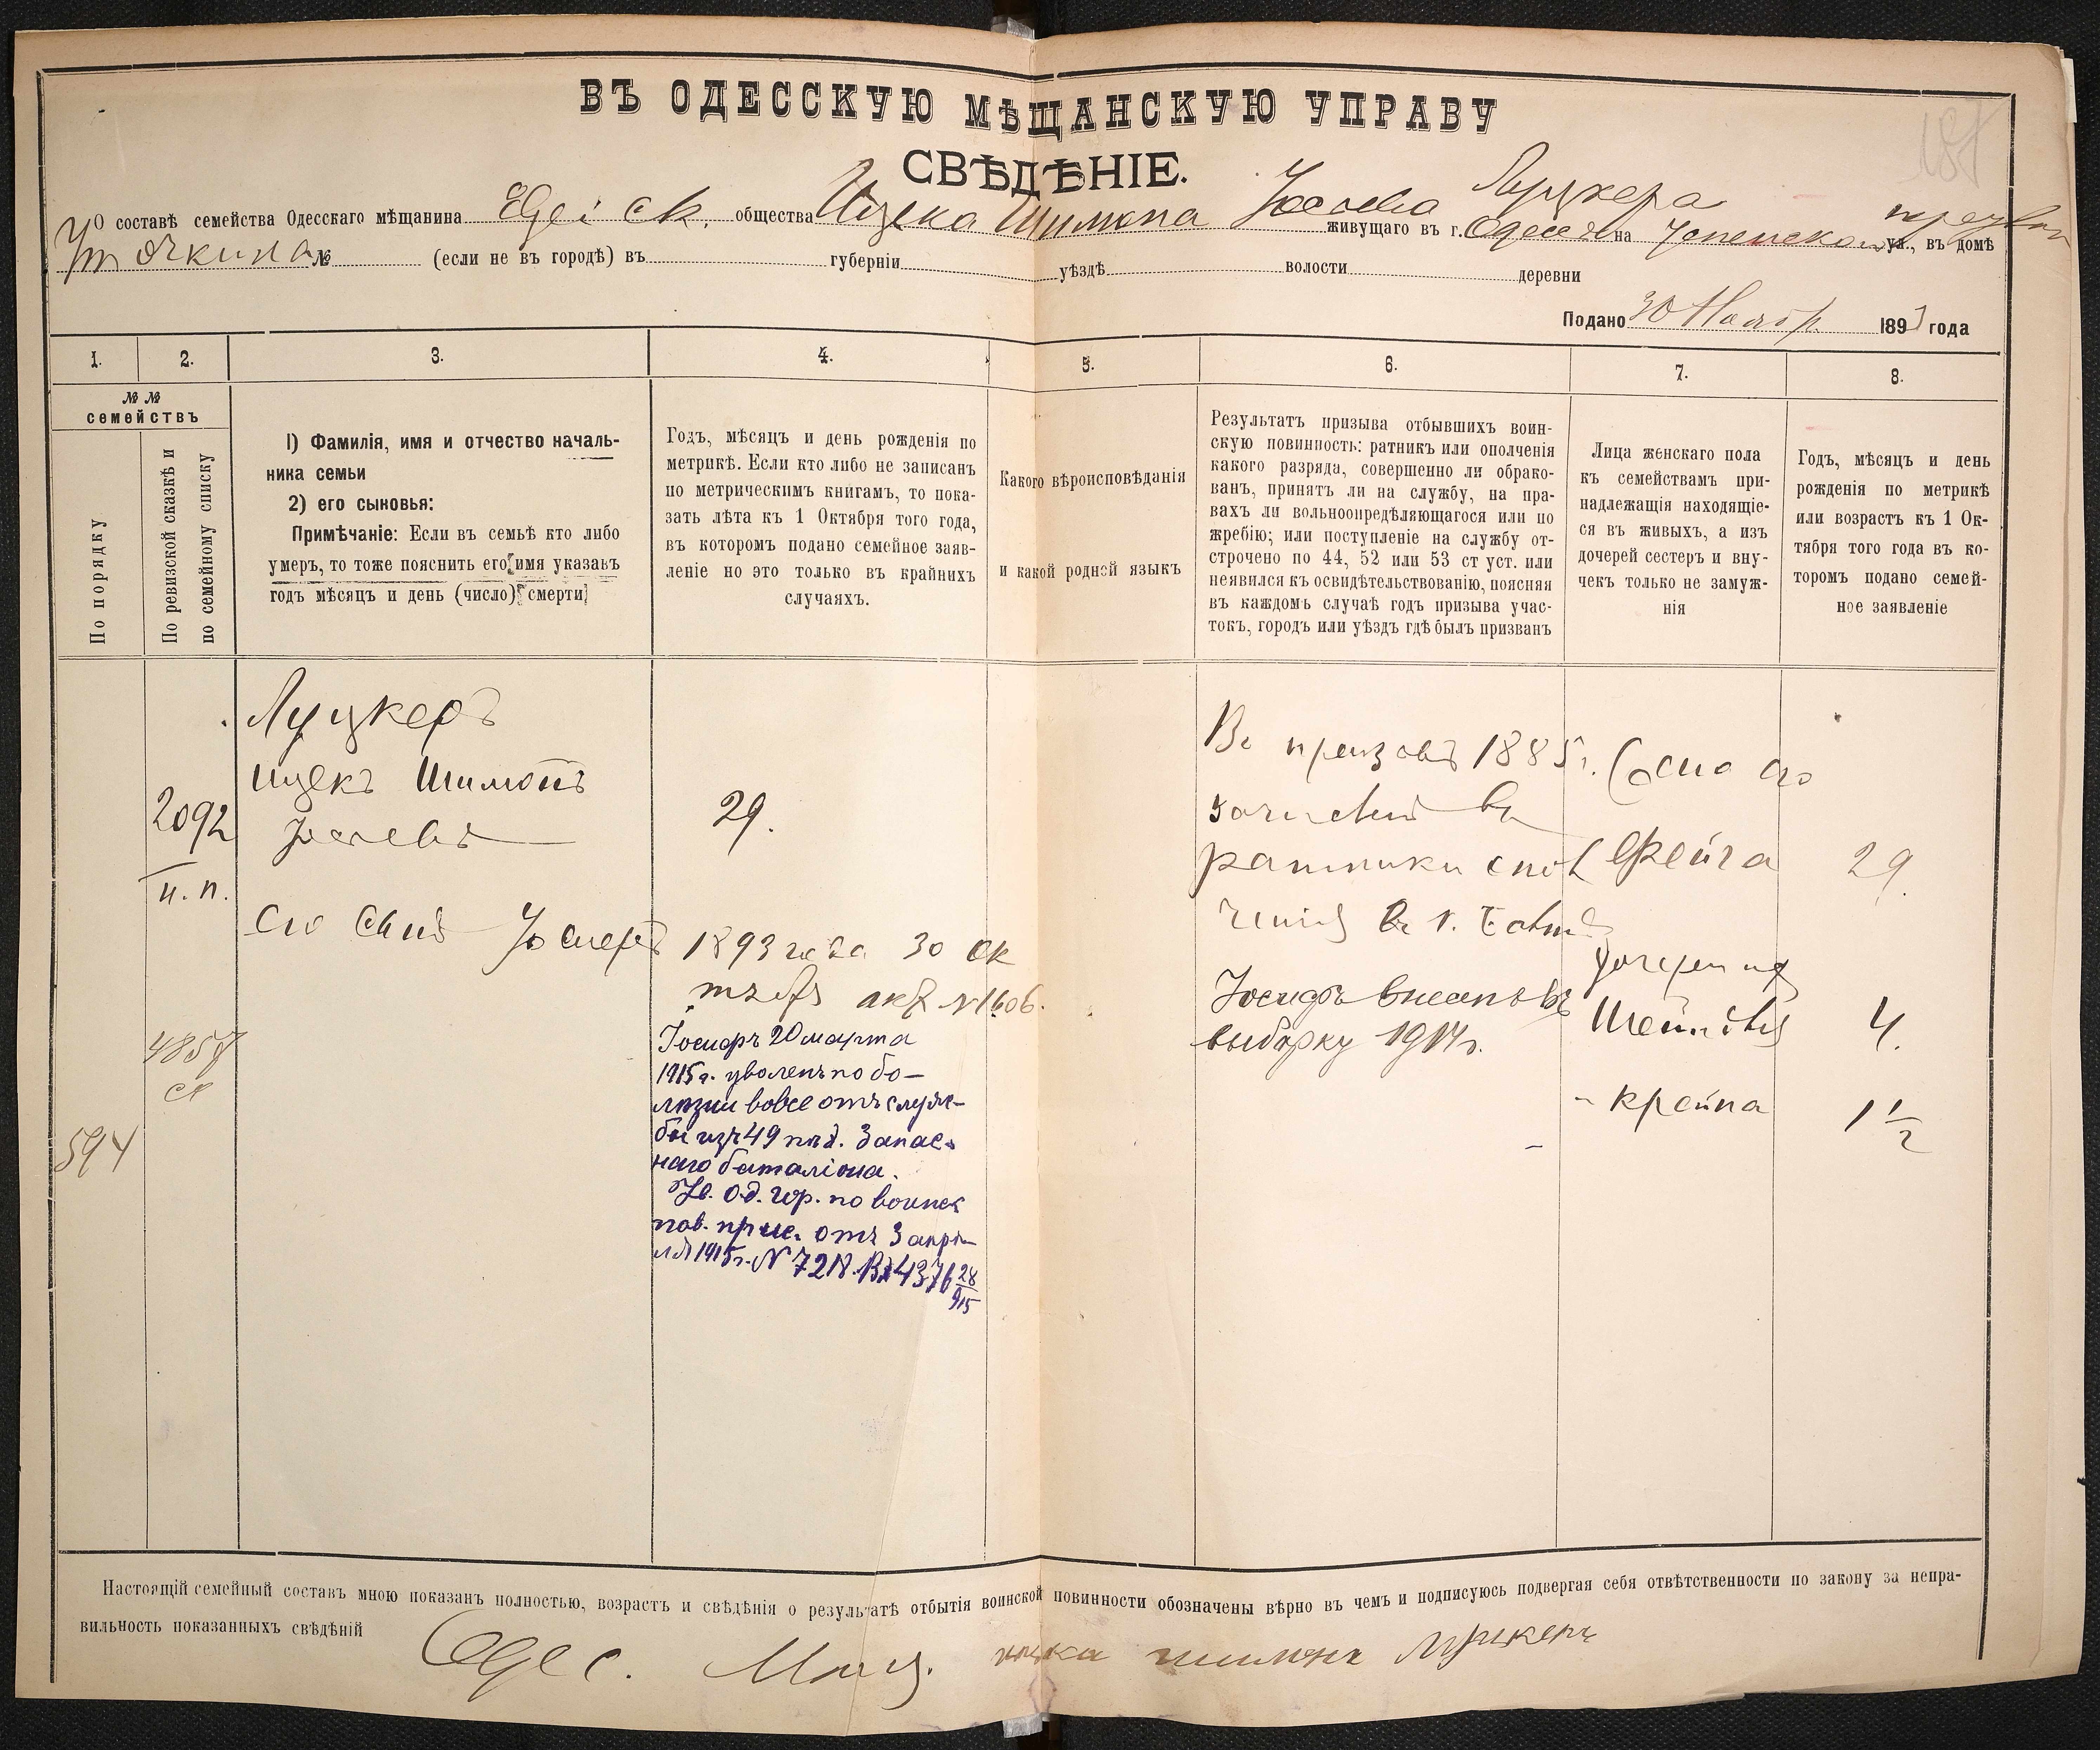 ВЪ ОДЕССКУЮ МѢЩАНСКУЮ УПРАВУ
СВѢДѢНІЕ.
О составѣ семейства Одесскаго мѣщанина общества Ицека Шимона Луцкера живущаго въ г. Одессѣ на Успенской ул., въ домѣ
№ (если не въ городѣ) въ губерніи уѣздѣ волости деревни
Подано 30 Ноябр 1893 года
1. 2. 3. 4. 5. 6. 7. 8.
№ №
семействъ
По порядку
По ревизской сказкѣ и
по семейному списку
1) Фамилія, имя и отчество началь-
ника семьи
2) его сыновья:
Примѣчаніе: Если въ семьѣ кто либо
умеръ, то тоже пояснить его имя указавъ
годъ мѣсяцъ и день (число) смерти
Годъ, мѣсяцъ и день рожденія по
метрикѣ. Если кто либо не записанъ
по метрическимъ книгамъ, то пока-
зать лѣта къ 1 Октября того года,
въ которомъ подано семейное заяв-
леніе но это только въ крайнихъ
случаяхъ.
Какого вѣроисповѣданія
и какой родной языкъ
Результатъ призыва отбывшихъ воин-
скую повинность: ратникъ или ополченія
какого разряда, совершенно ли обрако-
ванъ, принятъ ли на службу, на пра-
вахъ ли вольноопредѣляющагося или по
жребію; или поступленіе на службу от-
строчено по 44, 52 или 53 ст уст. или
неявился къ освидѣтельствованію, поясняя
въ каждомъ случаѣ годъ призыва учас-
токъ, городъ или уѣздъ гдѣ былъ призванъ
Лица женскаго пола
къ семействамъ при-
надлежащія находящіе-
ся въ живыхъ, а изъ
дочерей сестеръ и вну-
чекъ только не замуж-
нія
Годъ, мѣсяцъ и день
рожденія по метрикѣ
или возрастъ къ 1 Ок-
тября того года въ ко-
торомъ подано семей-
ное заявленіе
2092
н. п.
594
Луцкеръ
Ицекъ Шимонъ
его сынъ Іосифъ
29.
1893 года 30 ок
№ 1606.
Іосифъ 20 марта
1915 г. уволенъ по бо-
лѣзни вовсе отъ служ-
бы изъ 49 пѣх. Запас-
наго баталіона.
Ув. Од. гор. по воинск
пов. прис. отъ 3 апрѣ-
ля 1915 г. № 7218. Вх 4376 28/915
Въ призывъ 1885 г.
зачисленъ въ
ратники
Іосифъ внесенъ въ
выборку 1914 г.
Фейга
29.
4.
Крейна
1 1/2
Настоящій семейный составъ мною показанъ полностью, возрастъ и свѣдѣнія о результатѣ отбытія воинской повинности обозначены вѣрно въ чемъ и подписуюсь подвергая себя отвѣтственности по закону за непра-
вильность показанныхъ свѣдѣній
Одес. Мѣщ. шимонъ Луцкеръ